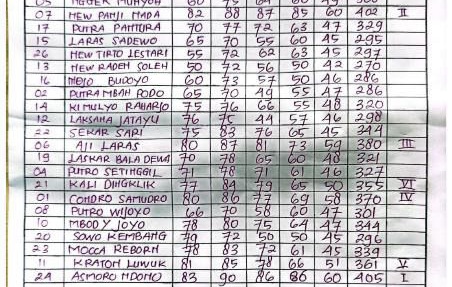 05 75 60 49
07 HEW PANJI MADA 82 88 87 85 60 402 II
17 PUTRA PANTURA 70 77 72 63 47 329
15 LARAS SADEWO 65 70 55 60 45 295
26 HEW TIRTO LESTARI 55 72 62 63 45 297
13 HEW RADEN SOLEH 50 72 56 50 42 270
16 BUDOYO 60 73 57 50 46 286
02 PUTRA MBAH PODO 65 70 49 55 47 286
14 KIMULYO RAHARJO 75 76 66 55 48 320
12 LAKSANA JATAYU 76 75 44 57 46 298
22 SEKAR SARI 75 83 76 65 45 344
06 AJI LARAS 80 87 81 73 59 380 III
19 LASKAR BALA DEWA 70 78 65 60 48 321
04 PUTRO SETINGGIL 71 78 71 61 46 327
21 KALI DINGKLIK 77 84 79 65 50 355 VI
01 CONDRO SAMUDRO 80 86 77 69 58 370 IV
08 PUTRO WIJOYO 66 70 58 60 47 301
10 MBODY JOYO 78 80 75 64 47 344
20 SOWO KEMBANG 79 72 50 50 45 296
23 MOCCA REBORN 78 83 72 61 45 339
11 KRATON LUWUK 81 85 78 66 51 361 V
24 ASMORO NDONO 83 90 86 86 60 405 I